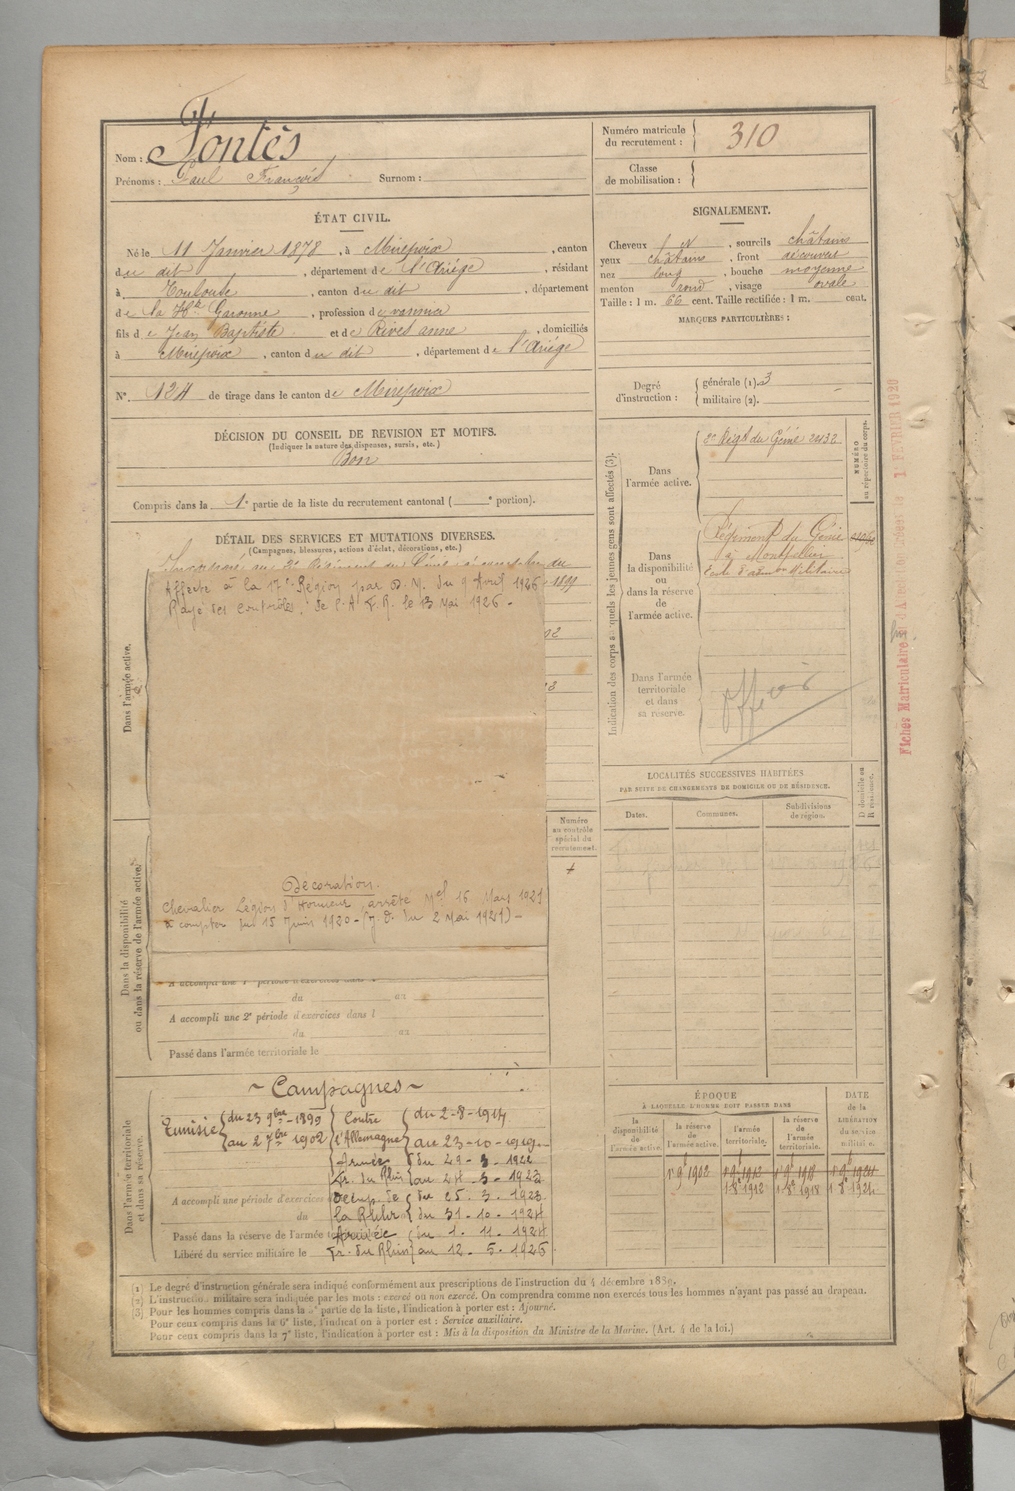 Nom : Fontès
Prénoms : Paul François Surnom :
Numéro matricule du recrutement : 310
Classe de mobilisation :
ÉTAT CIVIL.
Né le 11 Janvier 1878, à Mirepoix, canton
du dit, département de l'Ariége, résidant
à Toulouse, canton du dit, département
de la Hte Garonne, profession de vannier
fils de Jean Baptiste et de Rives anne, domiciliés
à Mirepoix, canton du dit, département de l'Ariége
N°. 124 de tirage dans le canton de Mirepoix
SIGNALEMENT.
Cheveux N, sourcils châtains
yeux châtains, front découvert
nez long, bouche moyenne
menton rond, visage ovale
Taille : 1 m. 66 cent. Taille rectifiée : 1 m. cent.
MARQUES PARTICULIÈRES :
Degré d'instruction : générale (1). 3
militaire (2).
DÉCISION DU CONSEIL DE REVISION ET MOTIFS.
(Indiquer la nature des dispenses, sursis, etc.)
Bon
Compris dans la 1e partie de la liste du recrutement cantonal ( e portion).
DÉTAIL DES SERVICES ET MUTATIONS DIVERSES.
(Campagnes, blessures, actions d'éclat, décorations, etc.)
Dans l'armée active.
Affecté à la 17e Région par D. M. du 9 Avril 1926
Rayé des contrôles de l'A F. R. le 13 Mai 1926 -
1899
02
Décoration.
Chevalier Légion d'Honneur, arrêté Mel 16 Mars 1921
à compter du 15 Juin 1920 - (J. O. du 2 Mai 1921) -
Numéro au contrôle spécial du recrutement.
Dans la disponibilité ou dans la réserve de l'armée active.
A accompli une 1e période d'exercices dans l
du au
A accompli une 2e période d'exercices dans l
du au
Passé dans l'armée territoriale le
Indication des corps auxquels les jeunes gens sont affectés (3).
Dans l'armée active.
2e Régt du Génie 2432
NUMÉRO au répertoire du corps.
Dans la disponibilité ou dans la réserve de l'armée active.
Régiment du Génie
à Montpellier
Dans l'armée territoriale et dans sa réserve.
Fiches Matriculaires
1er FEVRIER 1920
LOCALITÉS SUCCESSIVES HABITÉES
PAR SUITE DE CHANGEMENTS DE DOMICILE OU DE RÉSIDENCE.
Dates. Communes. Subdivisions de région. D domicile ou R résidence.
Dans l'armée territoriale et dans sa réserve.
~ Campagnes ~
Tunisie du 23 9bre - 1899
au 2 7bre 1902
Contre l'Allemagne du 2-8-1914
au 23-10-1919
Armée Fr. du Rhin du 29 - 3 - 1922
au 24 - 3 - 1923
Occup. de la Ruhr du 25. 3. 1923
du 31 - 10 - 1924
Armée Fr. du Rhin du 1. 11. 1924
au 12 - 5 - 1926
A accompli une période d'exercices
du
Passé dans la réserve de l'armée territoriale
Libéré du service militaire le
ÉPOQUE
À LAQUELLE L'HOMME DOIT PASSER DANS
la disponibilité de l'armée active. la réserve de l'armée active. l'armée territoriale. la réserve de l'armée territoriale.
DATE de la LIBÉRATION du service militaire.
1er 9bre 1902 1er 9bre 1912 1er 9bre 1918 1er 9bre 1924
1. 8bre 1912 1. 8bre 1918 1 8bre 1924
(1) Le degré d'instruction générale sera indiqué conformément aux prescriptions de l'instruction du 4 décembre 1889.
(2) L'instruction militaire sera indiquée par les mots : exercé ou non exercé. On comprendra comme non exercés tous les hommes n'ayant pas passé au drapeau.
(3) Pour les hommes compris dans la 5e partie de la liste, l'indication à porter est : Ajourné.
Pour ceux compris dans la 6e liste, l'indication à porter est : Service auxiliaire.
Pour ceux compris dans la 7e liste, l'indication à porter est : Mis à la disposition du Ministre de la Marine. (Art. 4 de la loi.)